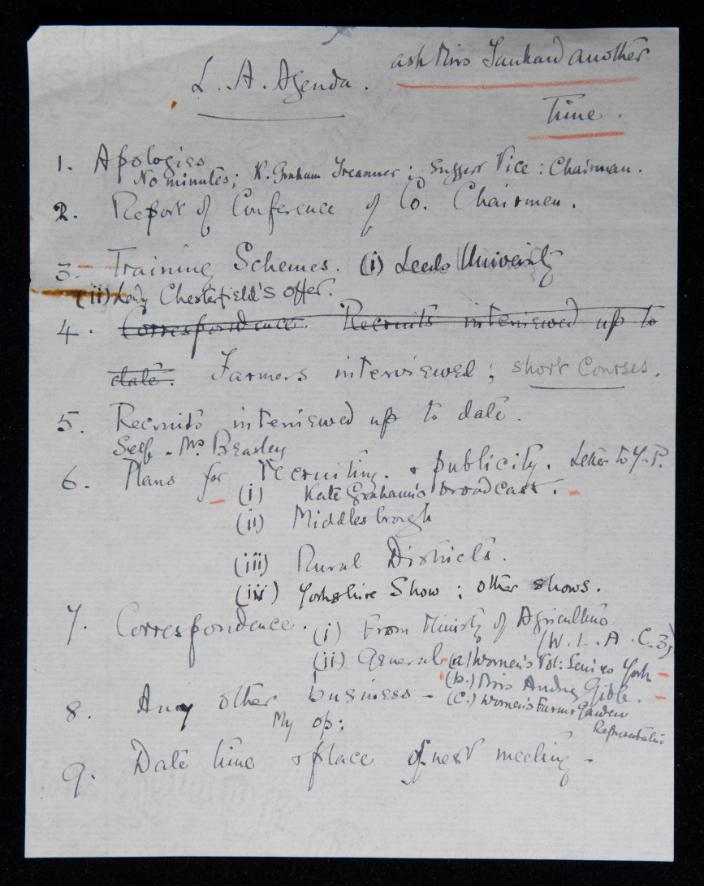 L. A. Agenda.
ask Miss Tankard another
Time.
1. Apologies
No minutes; K. Graham Treasurer; Suggest Vice: Chairman.
2. Report of Conference of Co. Chairmen.
3. Training Schemes. (i) Leeds University
(ii) Lady Chesterfield's offer.
4. Correspondence. Recruits interviewed up to
date. Farmers interviewed; short courses.
5. Recruits interviewed up to date.
Self. Mrs Beasley
6. Plans for recruiting. & publicity. Letter to Y.P.
(i) Kate Graham's broadcast.
(ii) Middlesbrough
(iii) Rural Districts.
(iv) Yorkshire Show; other shows.
7. Correspondence. (i) From Ministry of Agriculture
(W.L.A.C.3)
(ii) General (a) Women's Vol: Services York
(b.) Miss Audrey
8. Any other business - (c.) Women's Farm & Garden
My op; Representative
9. Date time & place of next meeting -